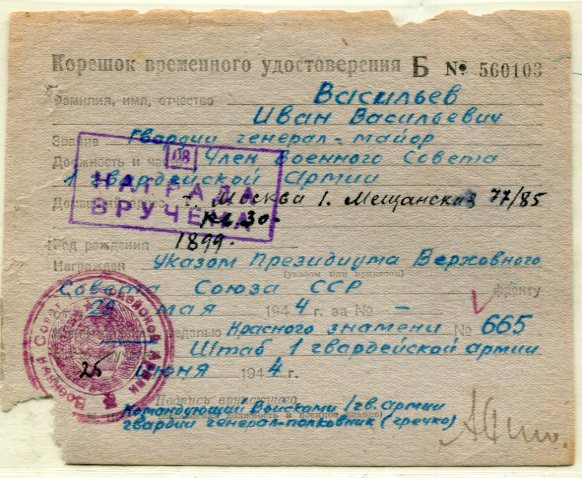 Корешок временного удостоверения Б № 560103
Фамилия, имя, отчество Васильев
Иван Васильевич
Звание Гвардии генерал-майор
Должность и часть Член Военного Совета
1 гвардейской Армии
Москва 1. Мещанская 77/85
кв. 30.
НАГРАДА
ВРУЧЕНА
Год рождения 1899.
Награжден Указом Президиума Верховного
(указом или приказом)
Совета Союза ССР фронту
от 29 мая 1944 г. за № —
Красного знамени № 665
Штаб 1 гвардейской армии
25 июня 1944 г.
Подпись вручившего
Командующий Войсками 1 гв. армии
гвардии генерал-полковник (гречко)